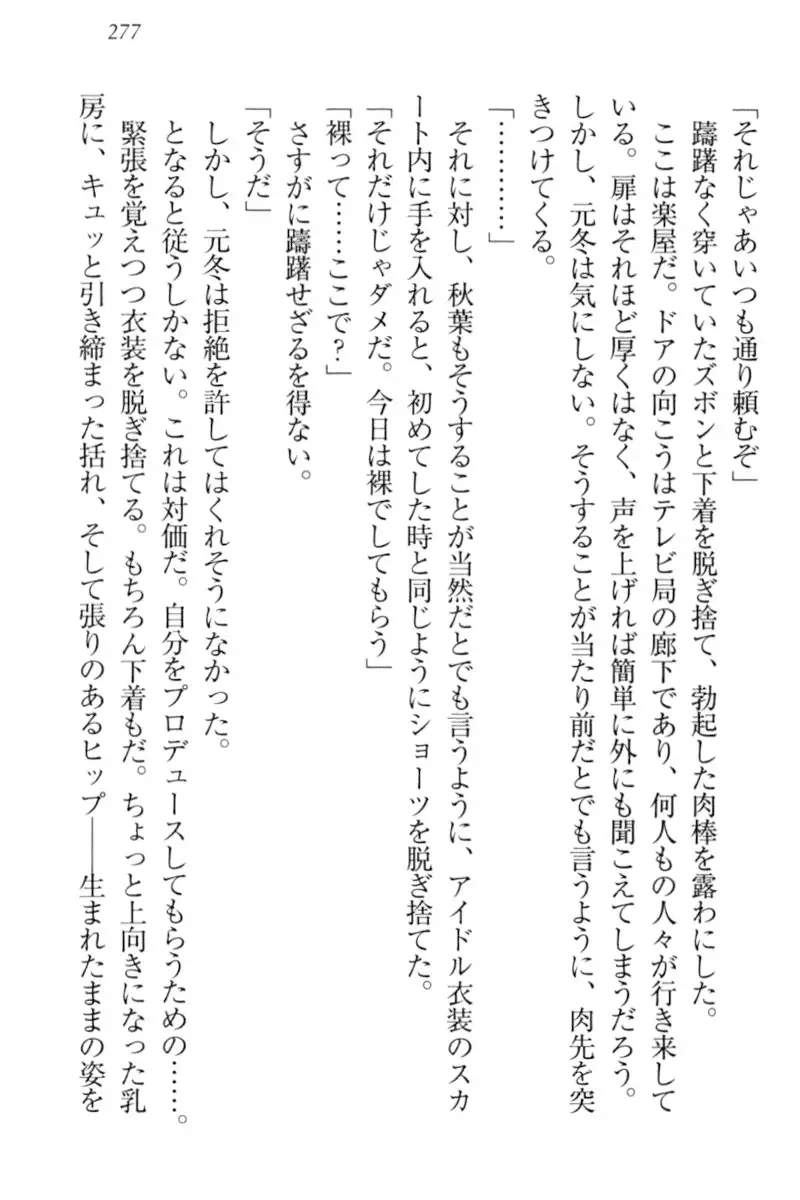 277
「それじゃあいつも通り頼むぞ」
躊躇なく穿いていたズボンと下着を脱ぎ捨て、勃起した肉棒を露わにした。
ここは楽屋だ。ドアの向こうはテレビ局の廊下であり、何人もの人々が行き来して
いる。扉はそれほど厚くはなく、声を上げれば簡単に外にも聞こえてしまうだろう。
しかし、元冬は気にしない。そうすることが当たり前だとでも言うように、肉先を突
きつけてくる。
「…………」
それに対し、秋葉もそうすることが当然だとでも言うように、アイドル衣装のスカ
ート内に手を入れると、初めてした時と同じようにショーツを脱ぎ捨てた。
「それだけじゃダメだ。今日は裸でしてもらう」
「裸って……ここで?」
さすがに躊躇せざるを得ない。
「そうだ」
しかし、元冬は拒絶を許してはくれそうになかった。
となると従うしかない。これは対価だ。自分をプロデュースしてもらうための……。
緊張を覚えつつ衣装を脱ぎ捨てる。もちろん下着もだ。ちょっと上向きになった乳
房に、キュッと引き締まった括れ、そして張りのあるヒップ――生まれたままの姿を